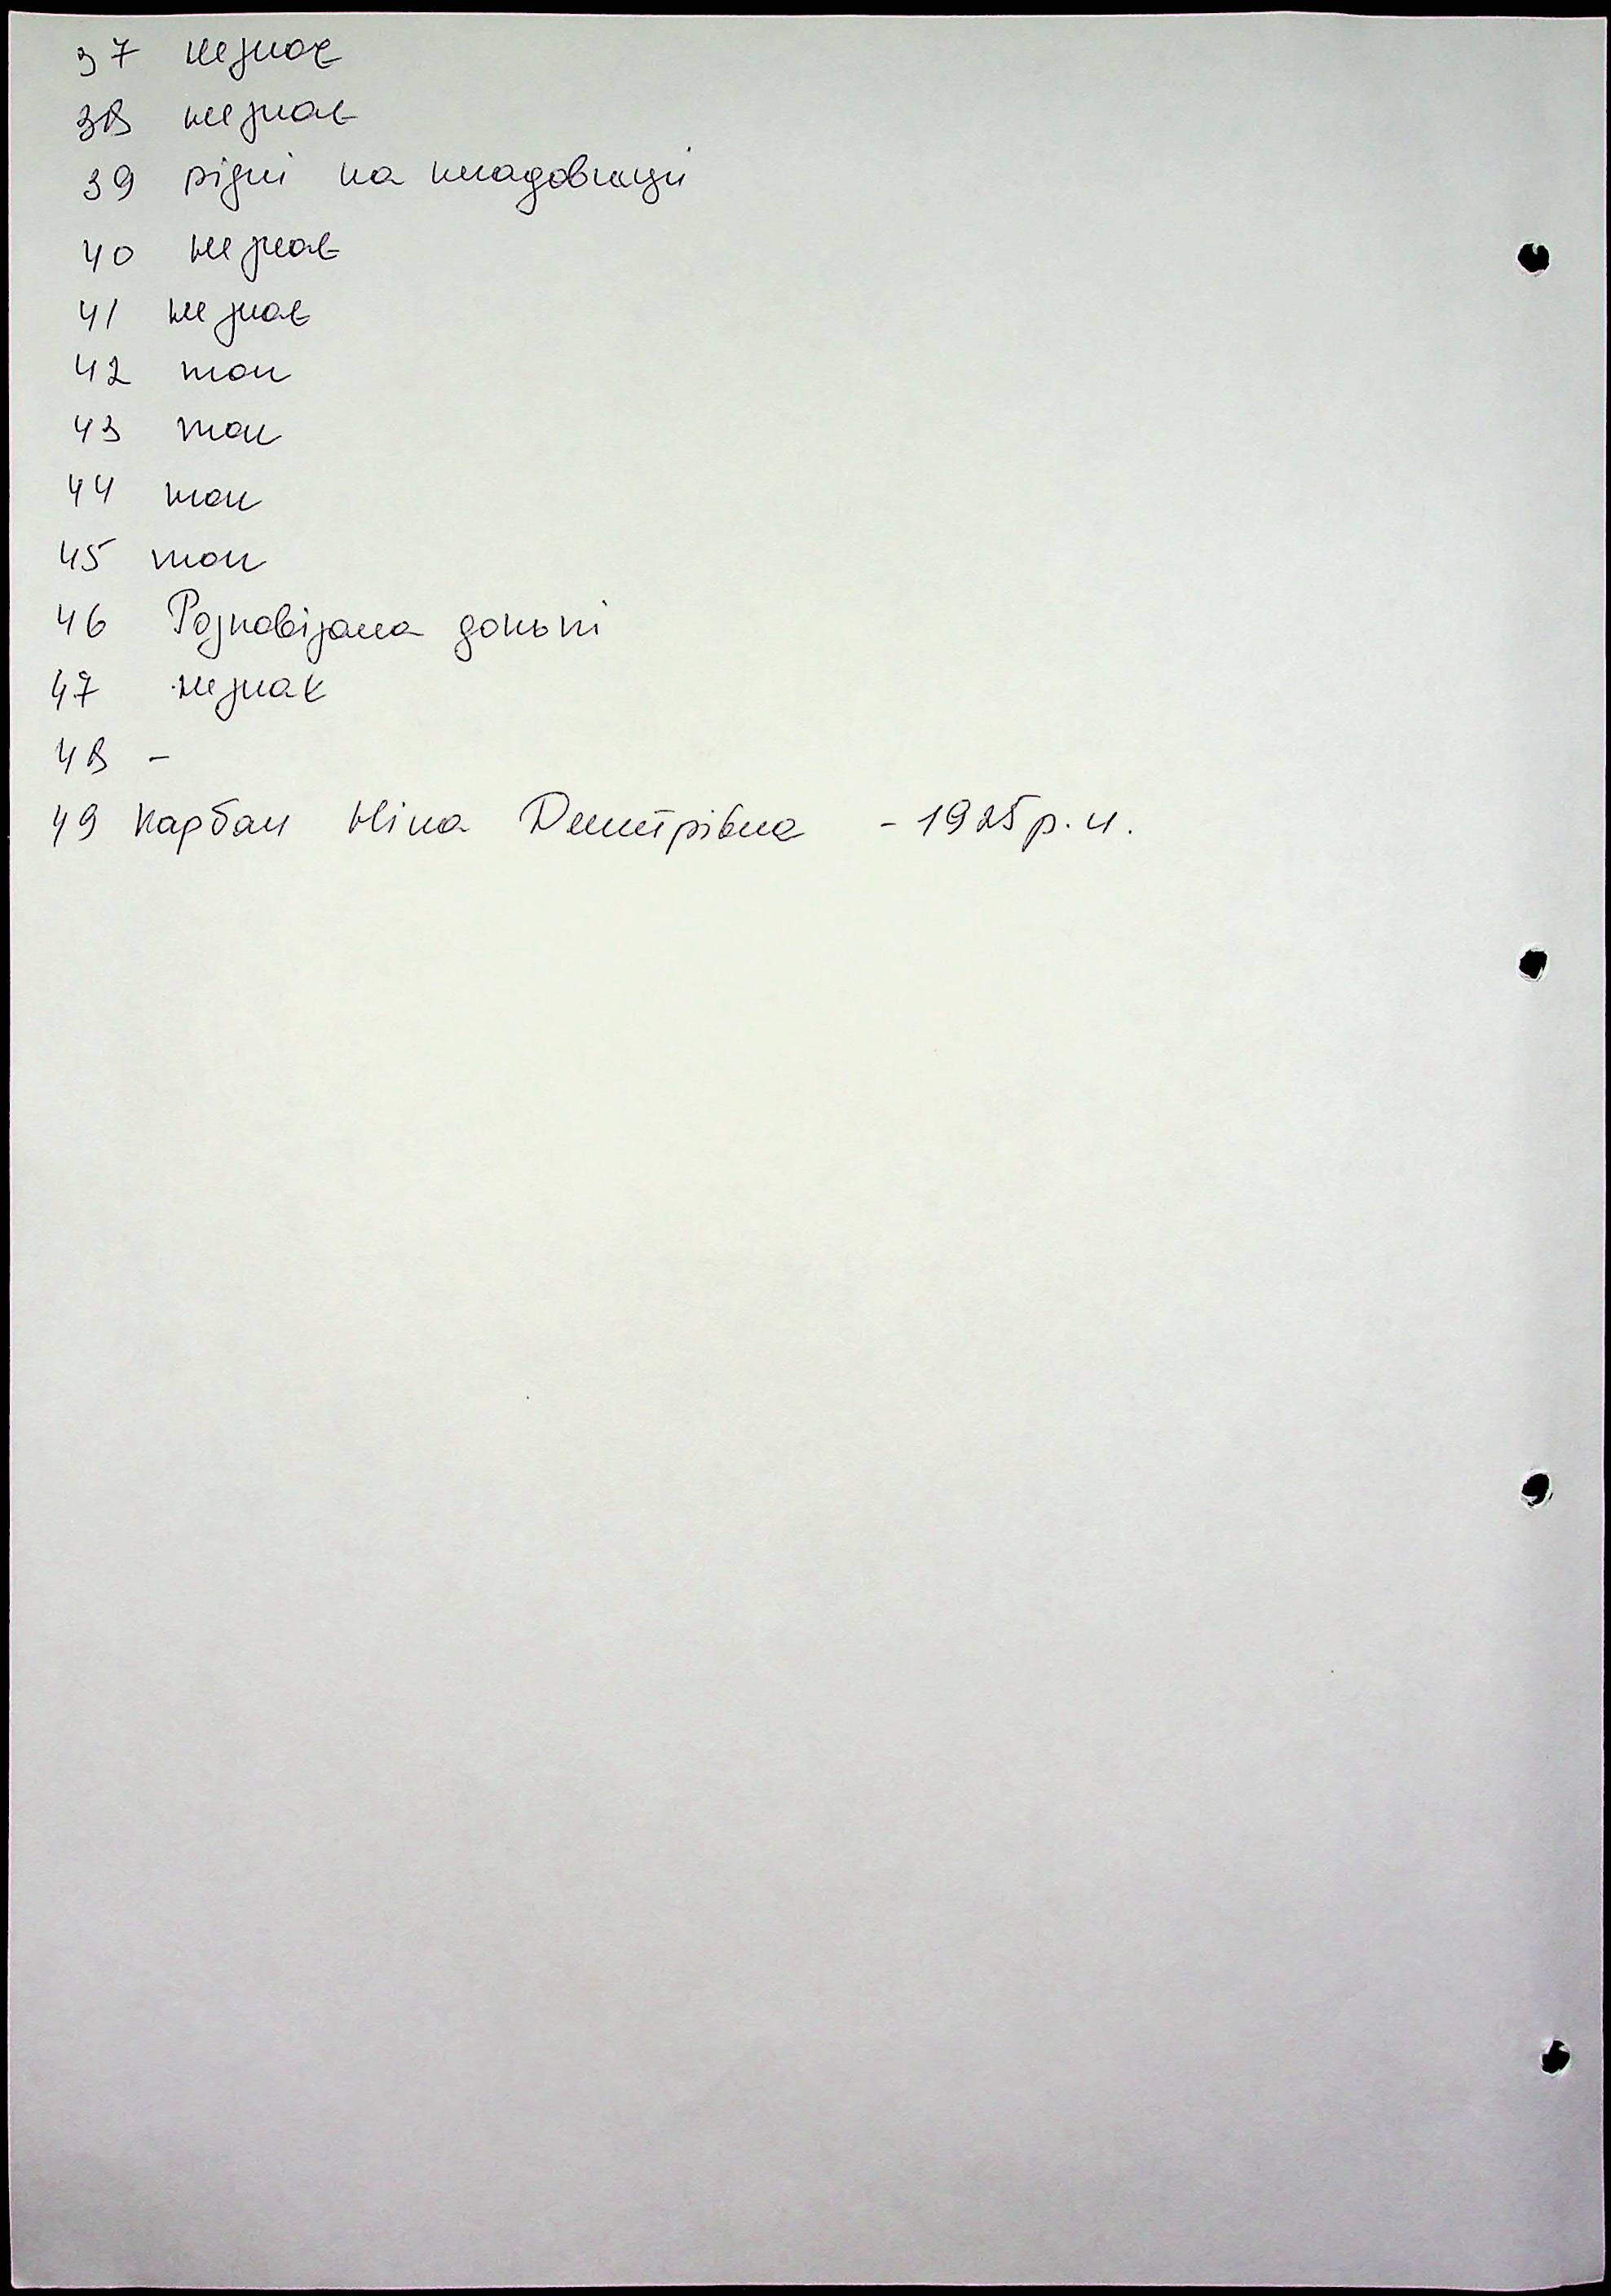 37 не знає
38 не знає
39 рідні на кладовищі
40 не знає
41 не знає
42 так
43 так
44 так
45 так
46 Розповідала доньці
47 не знає
48 -
49 Карбан Ніна Дмитрівна - 1925 р.н.